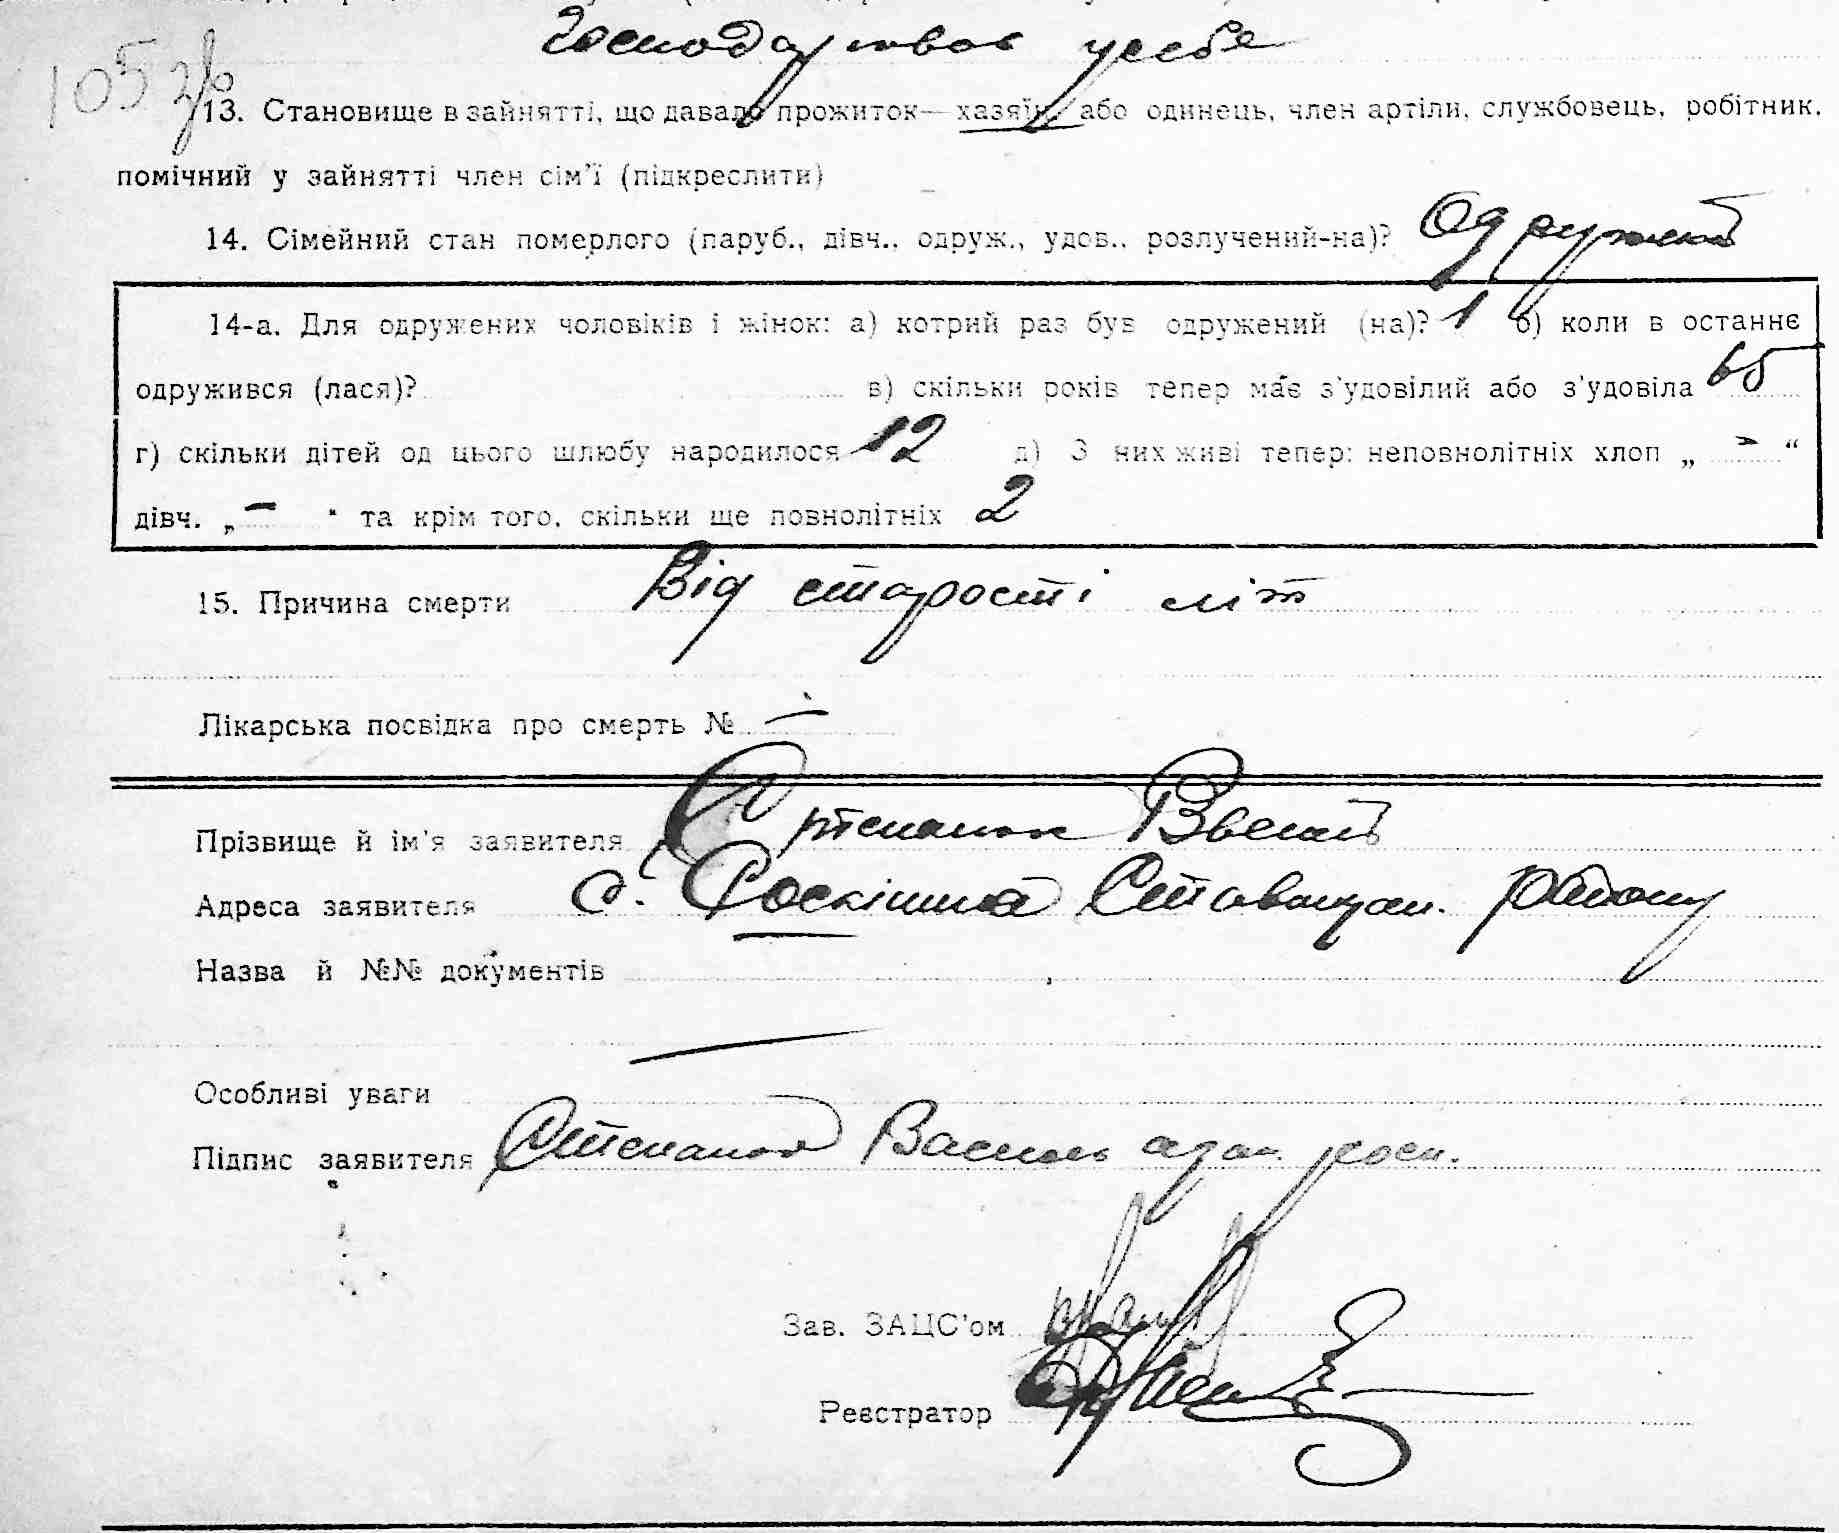 Господарював у себе
105 зв
13. Становище в зайнятті, що давало прожиток—хазяїн, або одинець, член артіли, службовець, робітник,
помічний у зайнятті член сім'ї (підкреслити)
14. Сімейний стан померлого (паруб., дівч., одруж., удов., розлучений-на)? Одружений
14-а. Для одружених чоловіків і жінок: а) котрий раз був одружений (на)? 1 б) коли в останнє
одружився (лася)? в) скільки років тепер має з'удовілий або з'удовіла 65
г) скільки дітей од цього шлюбу народилося 12 д) З них живі тепер: неповнолітніх хлоп „ - “
дівч. „ — " та крім того, скільки ще повнолітніх 2
15. Причина смерти Від старости літ
Лікарська посвідка про смерть № —
Прізвище й ім'я заявителя
Адреса заявителя с. Розкішна Ставищан. району
Назва й №№ документів
Особливі уваги
Підпис заявителя Степанюк Василь
Зав. ЗАЦС'ом
Реєстратор